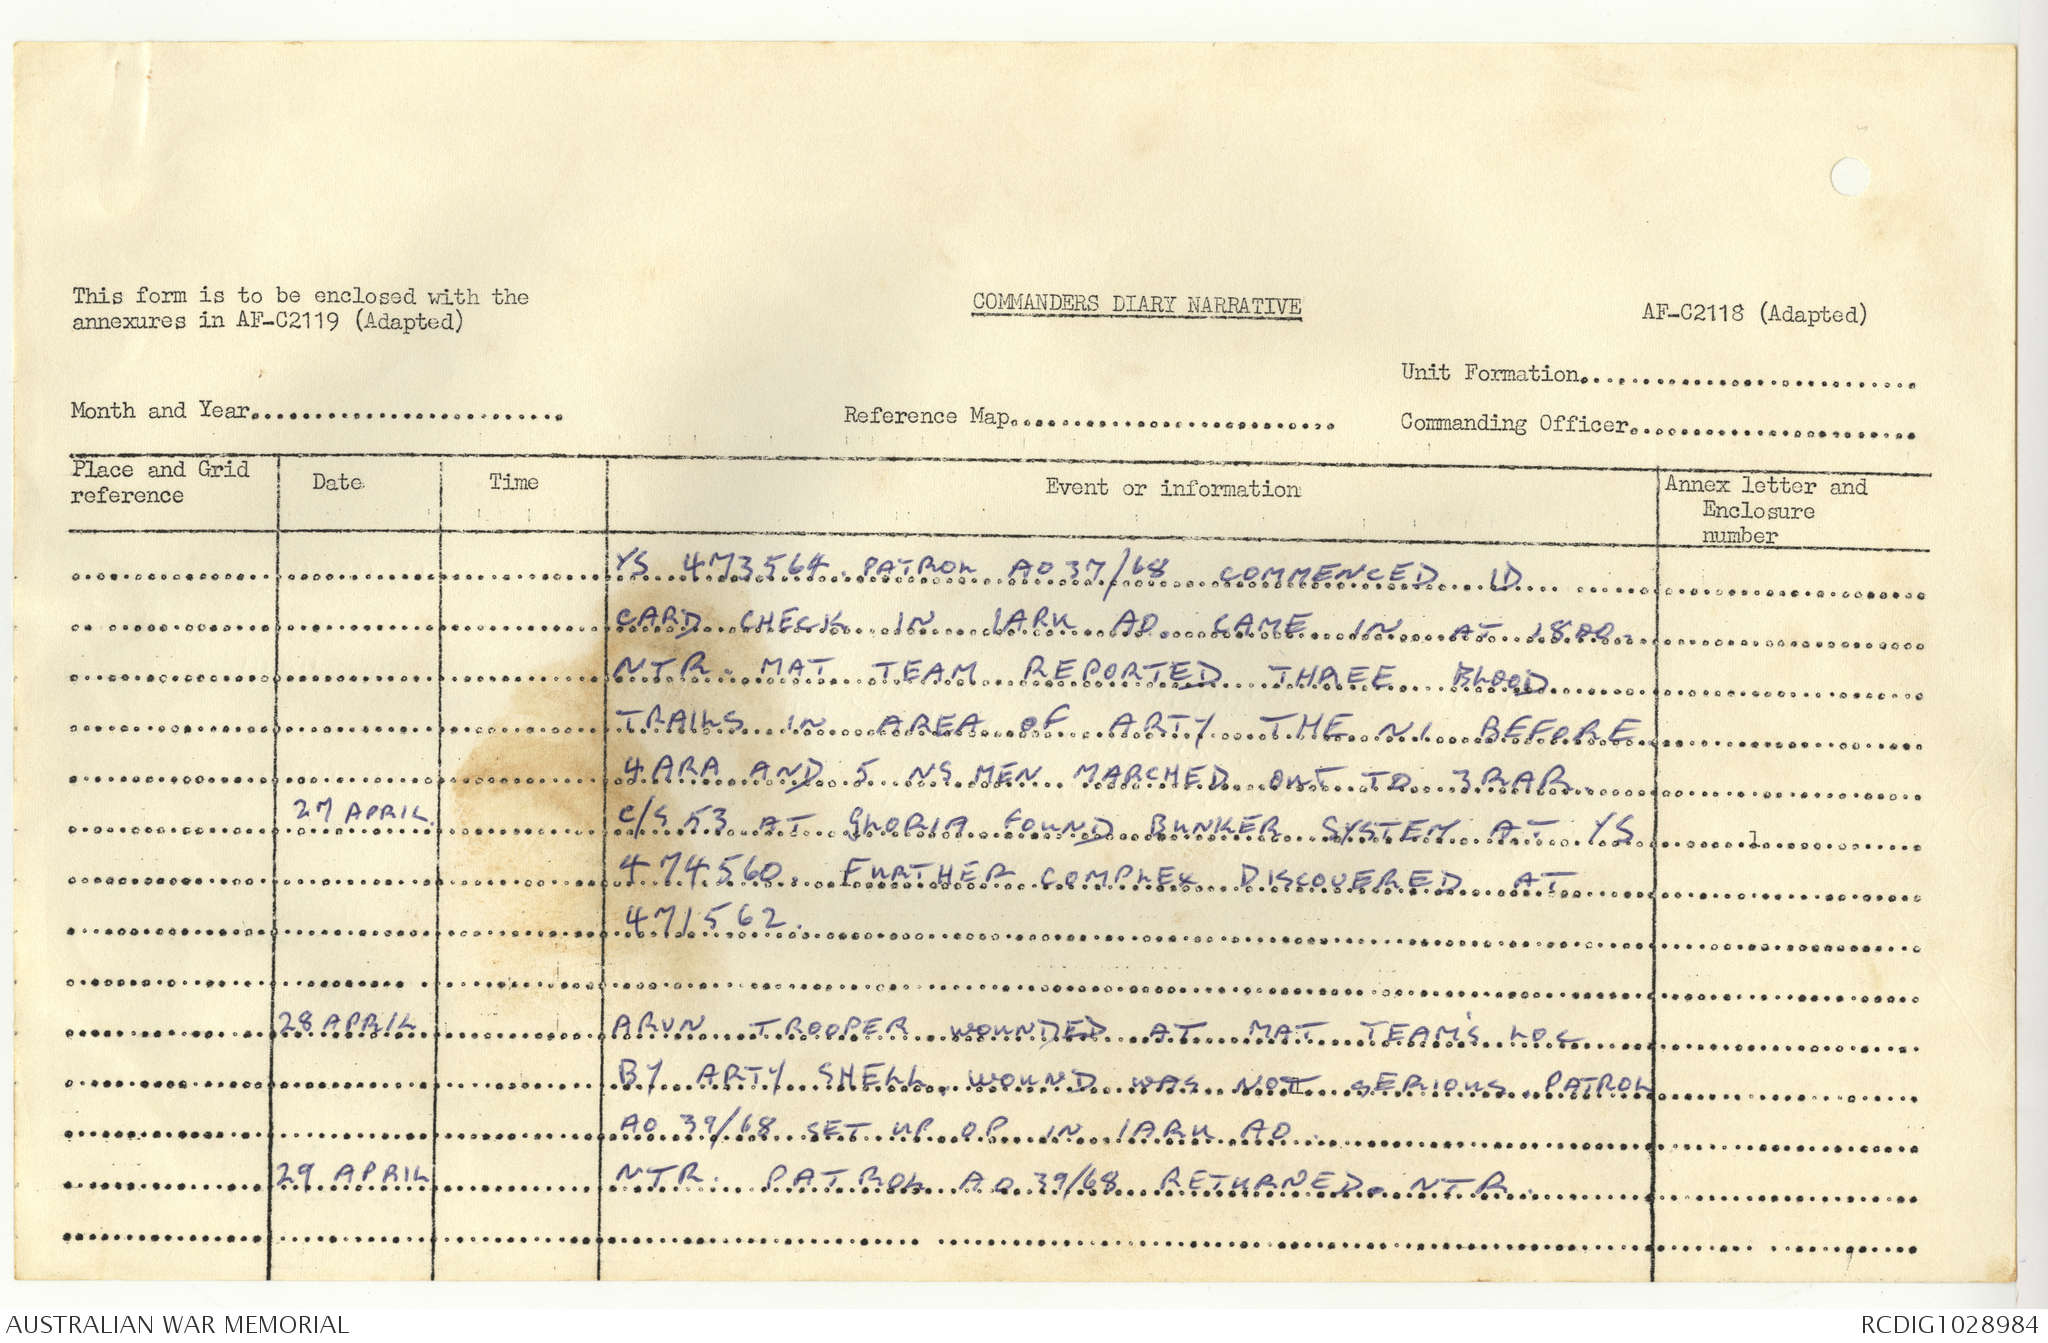 This form is to be enclosed with the
annexures in AF-C2119 (Adapted)
COMMANDERS DIARY NARRATIVE
AF-C2118 (Adapted)
Unit Formation
Month and Year
Reference Map
Commanding Officer
Place and Grid reference
Date
Time
Event or information
Annex letter and Enclosure number
YS 473564. PATROL AO 37/68 COMMENCED ID
CARD CHECK IN 1ARU AO CAME IN AT 1800.
NTR. MAT TEAM REPORTED THREE BLOOD
TRAILS IN AREA OF ARTY THE NI BEFORE
4 ARA AND 5 NS MEN MARCHED OUT TO 3 RAR.
27 APRIL. C/S 53 AT GLORIA FOUND BUNKER SYSTEM AT YS
474560. FURTHER COMPLEX DISCOVERED AT
471562.
28 APRIL ARVN TROOPER WOUNDED AT MAT TEAM'S LOC
BY ARTY SHELL. WOUND WAS NOT SERIOUS. PATROL
AO 39/68 SET UP OP IN 1ARU AO.
29 APRIL NTR. PATROL AO 39/68 RETURNED. NTR.
AUSTRALIAN WAR MEMORIAL
RCDIG1028984